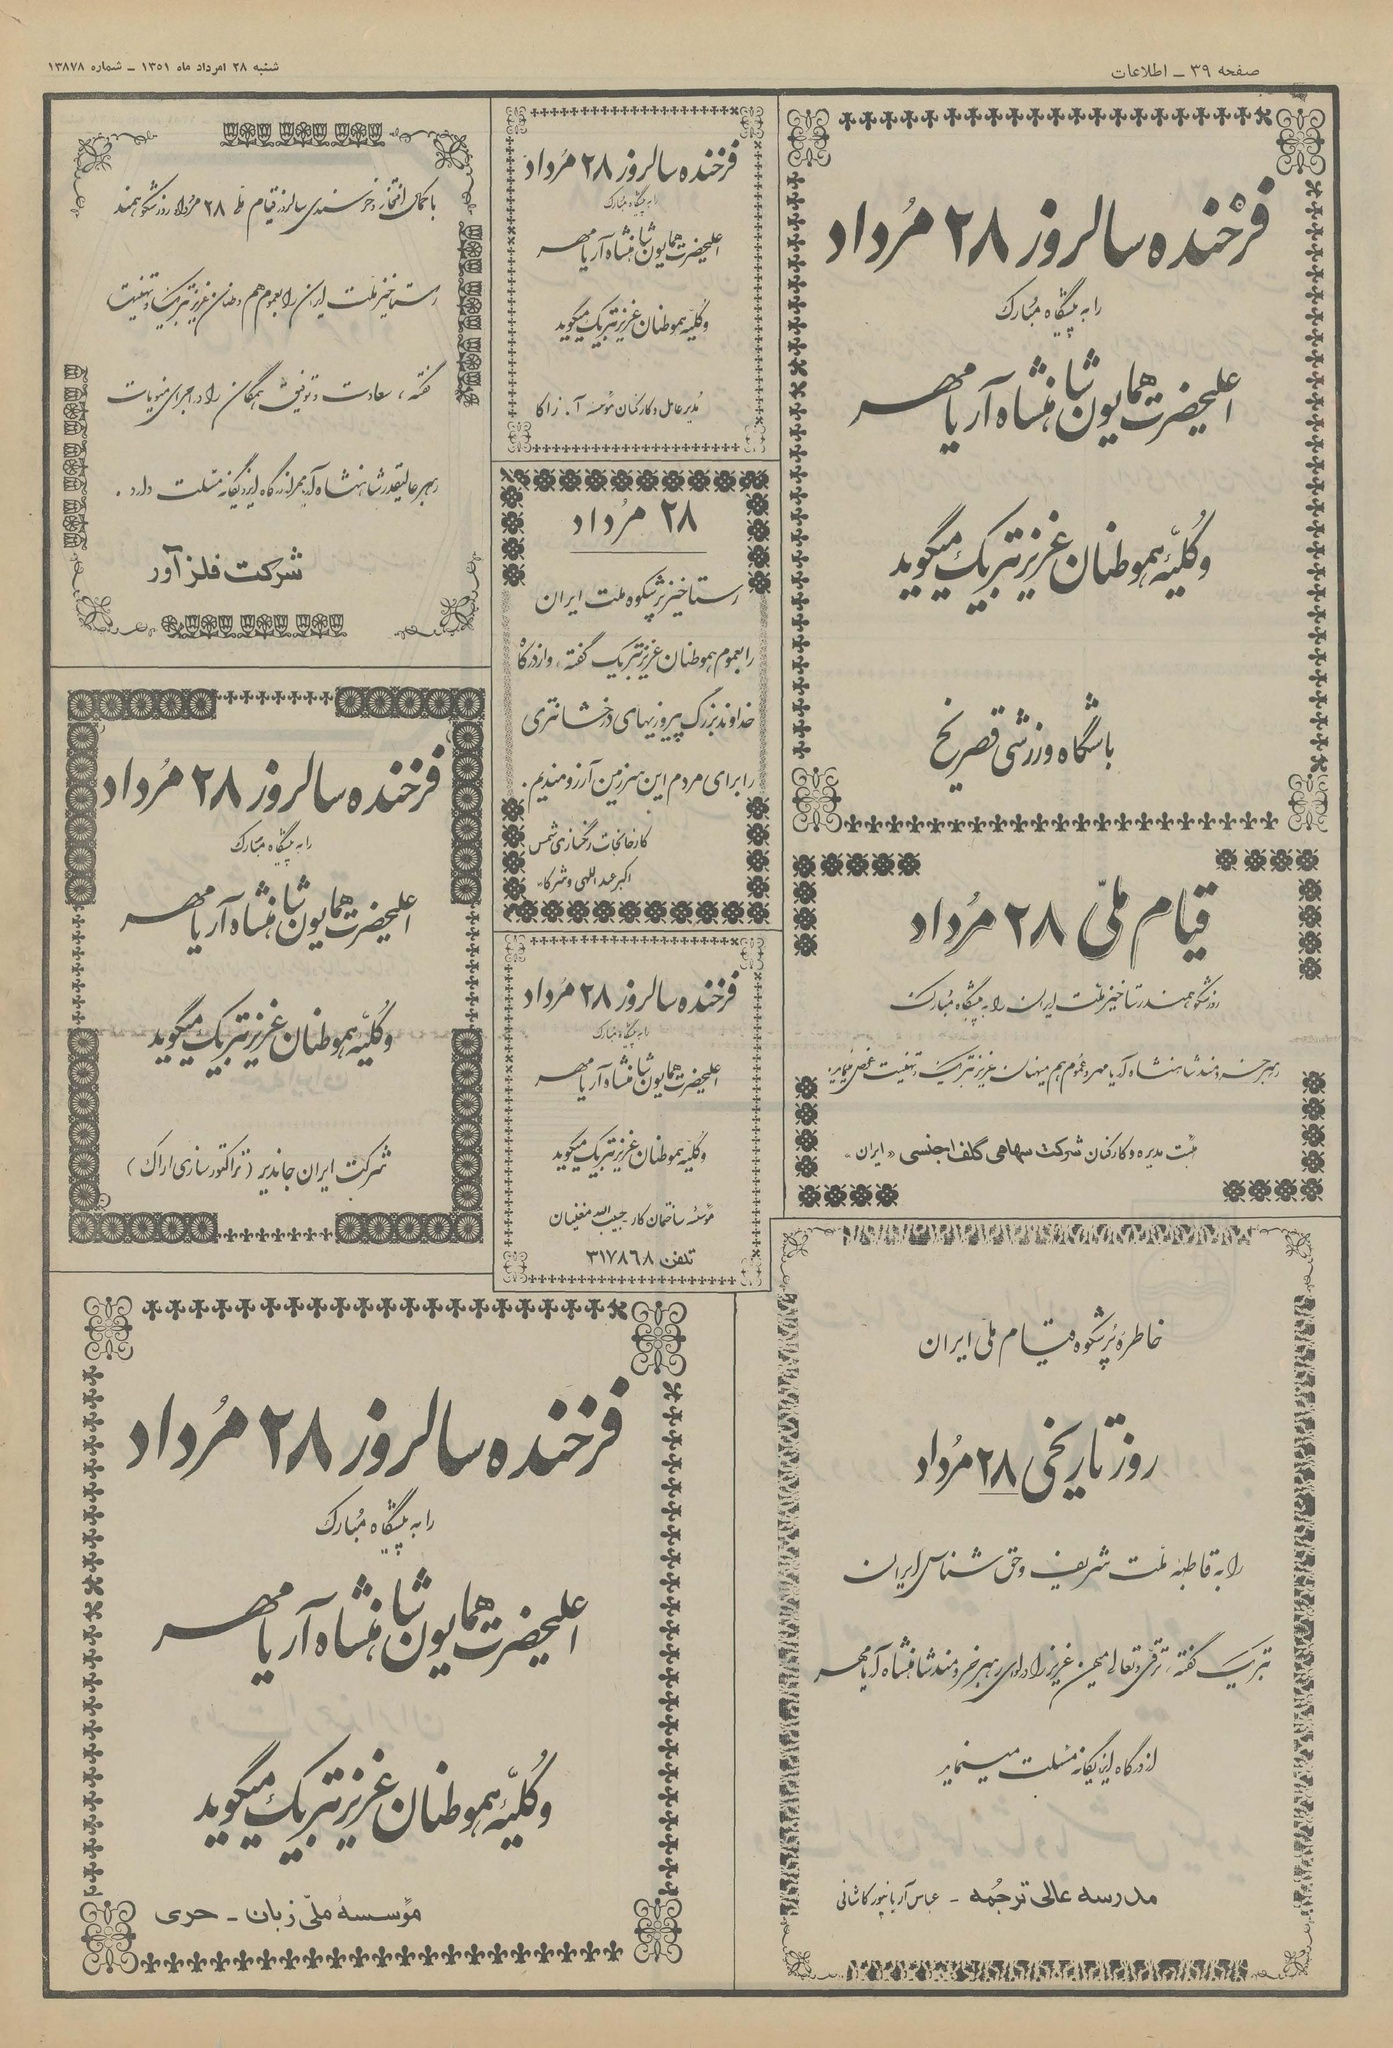 صفحه ۳۹ ـ اطلاعات
شنبه ۲۸ امرداد ماه ۱۳۵۱ ـ شماره ۱۳۸۷۸
فرخنده سالروز ۲۸ مُرداد
را به پیشگاه مُبارک
اعلیحضرت همایون شاهنشاه آریامهر
و کُلیّهٔ هموطنان عزیز تبریک میگوید
باشگاه ورزشی قصر یخ
قیام ملّی ۲۸ مُرداد
روز شکوهمند رستاخیز ملّت ایران را به پیشگاه مُبارک
رهبر خردمند شاهنشاه آریامهر و عموم هم میهنان عزیز تبریک و تهنیت عرض مینماید.
هیئت مدیره و کارکنان شرکت سهامی گلف اجنسی «ایران»
خاطرهٔ پُرشکوه قیام ملّی ایران
روز تاریخی ۲۸ مُرداد
را به قاطبهٔ ملّت شریف و حق شناس ایران
تبریک گفته، ترقی و تعالی میهن عزیز را در لوای رهبر خردمند شاهنشاه آریامهر
از درگاه ایزد یگانه مسئلت مینماید
مدرسه عالی ترجُمه ـ عباس آریانپور کاشانی
فرخنده سالروز ۲۸ مُرداد
را به پیشگاه مبارک
اعلیحضرت همایون شاهنشاه آریامهر
و کُلیّه هموطنان عزیز تبریک میگوید
مُدیر عامل و کارکنان مؤسسه آ. زاکا
۲۸ مُرداد
رستاخیز پُرشکوه ملت ایران
را بعموم هموطنان عزیز تبریک گفته، و از درگاه
خداوند بزرگ پیروزیهای درخشانتری
را برای مردم این سرزمین آرزومندیم.
کارخانجات رنگسازی شمس
اکبر عبداللهی و شرکاء
فرخنده سالروز ۲۸ مُرداد
را به پیشگاه مبارک
اعلیحضرت همایون شاهنشاه آریامهر
و کُلیّه هموطنان عزیز تبریک میگوید
مؤسسه ساختمان کار ـ حبیب الله مغیثیان
تلفن ۳۱۷۸۶۸
با کمال افتخار و خرسندی سالروز قیام ملی ۲۸ مرداد روز شکوهمند
رستاخیز ملّت ایران را بعموم هم وطنان عزیز تبریک و تهنیت
گفته، سعادت و توفیق همگان را در اجرای منویات
رهبر عالیقدر شاهنشاه آریامهر از درگاه ایزد یگانه مسئلت دارد.
شرکت فلز آور
فرخنده سالروز ۲۸ مُرداد
را به پیشگاه مبارک
اعلیحضرت همایون شاهنشاه آریامهر
و کُلیّه هموطنان عزیز تبریک میگوید
شرکت ایران جاندیر (تراکتور سازی اراک)
فرخنده سالروز ۲۸ مُرداد
را به پیشگاه مُبارک
اعلیحضرت همایون شاهنشاه آریامهر
و کُلیّهٔ هموطنان عزیز تبریک میگوید
مؤسسهٔ ملّی زبان ـ حری